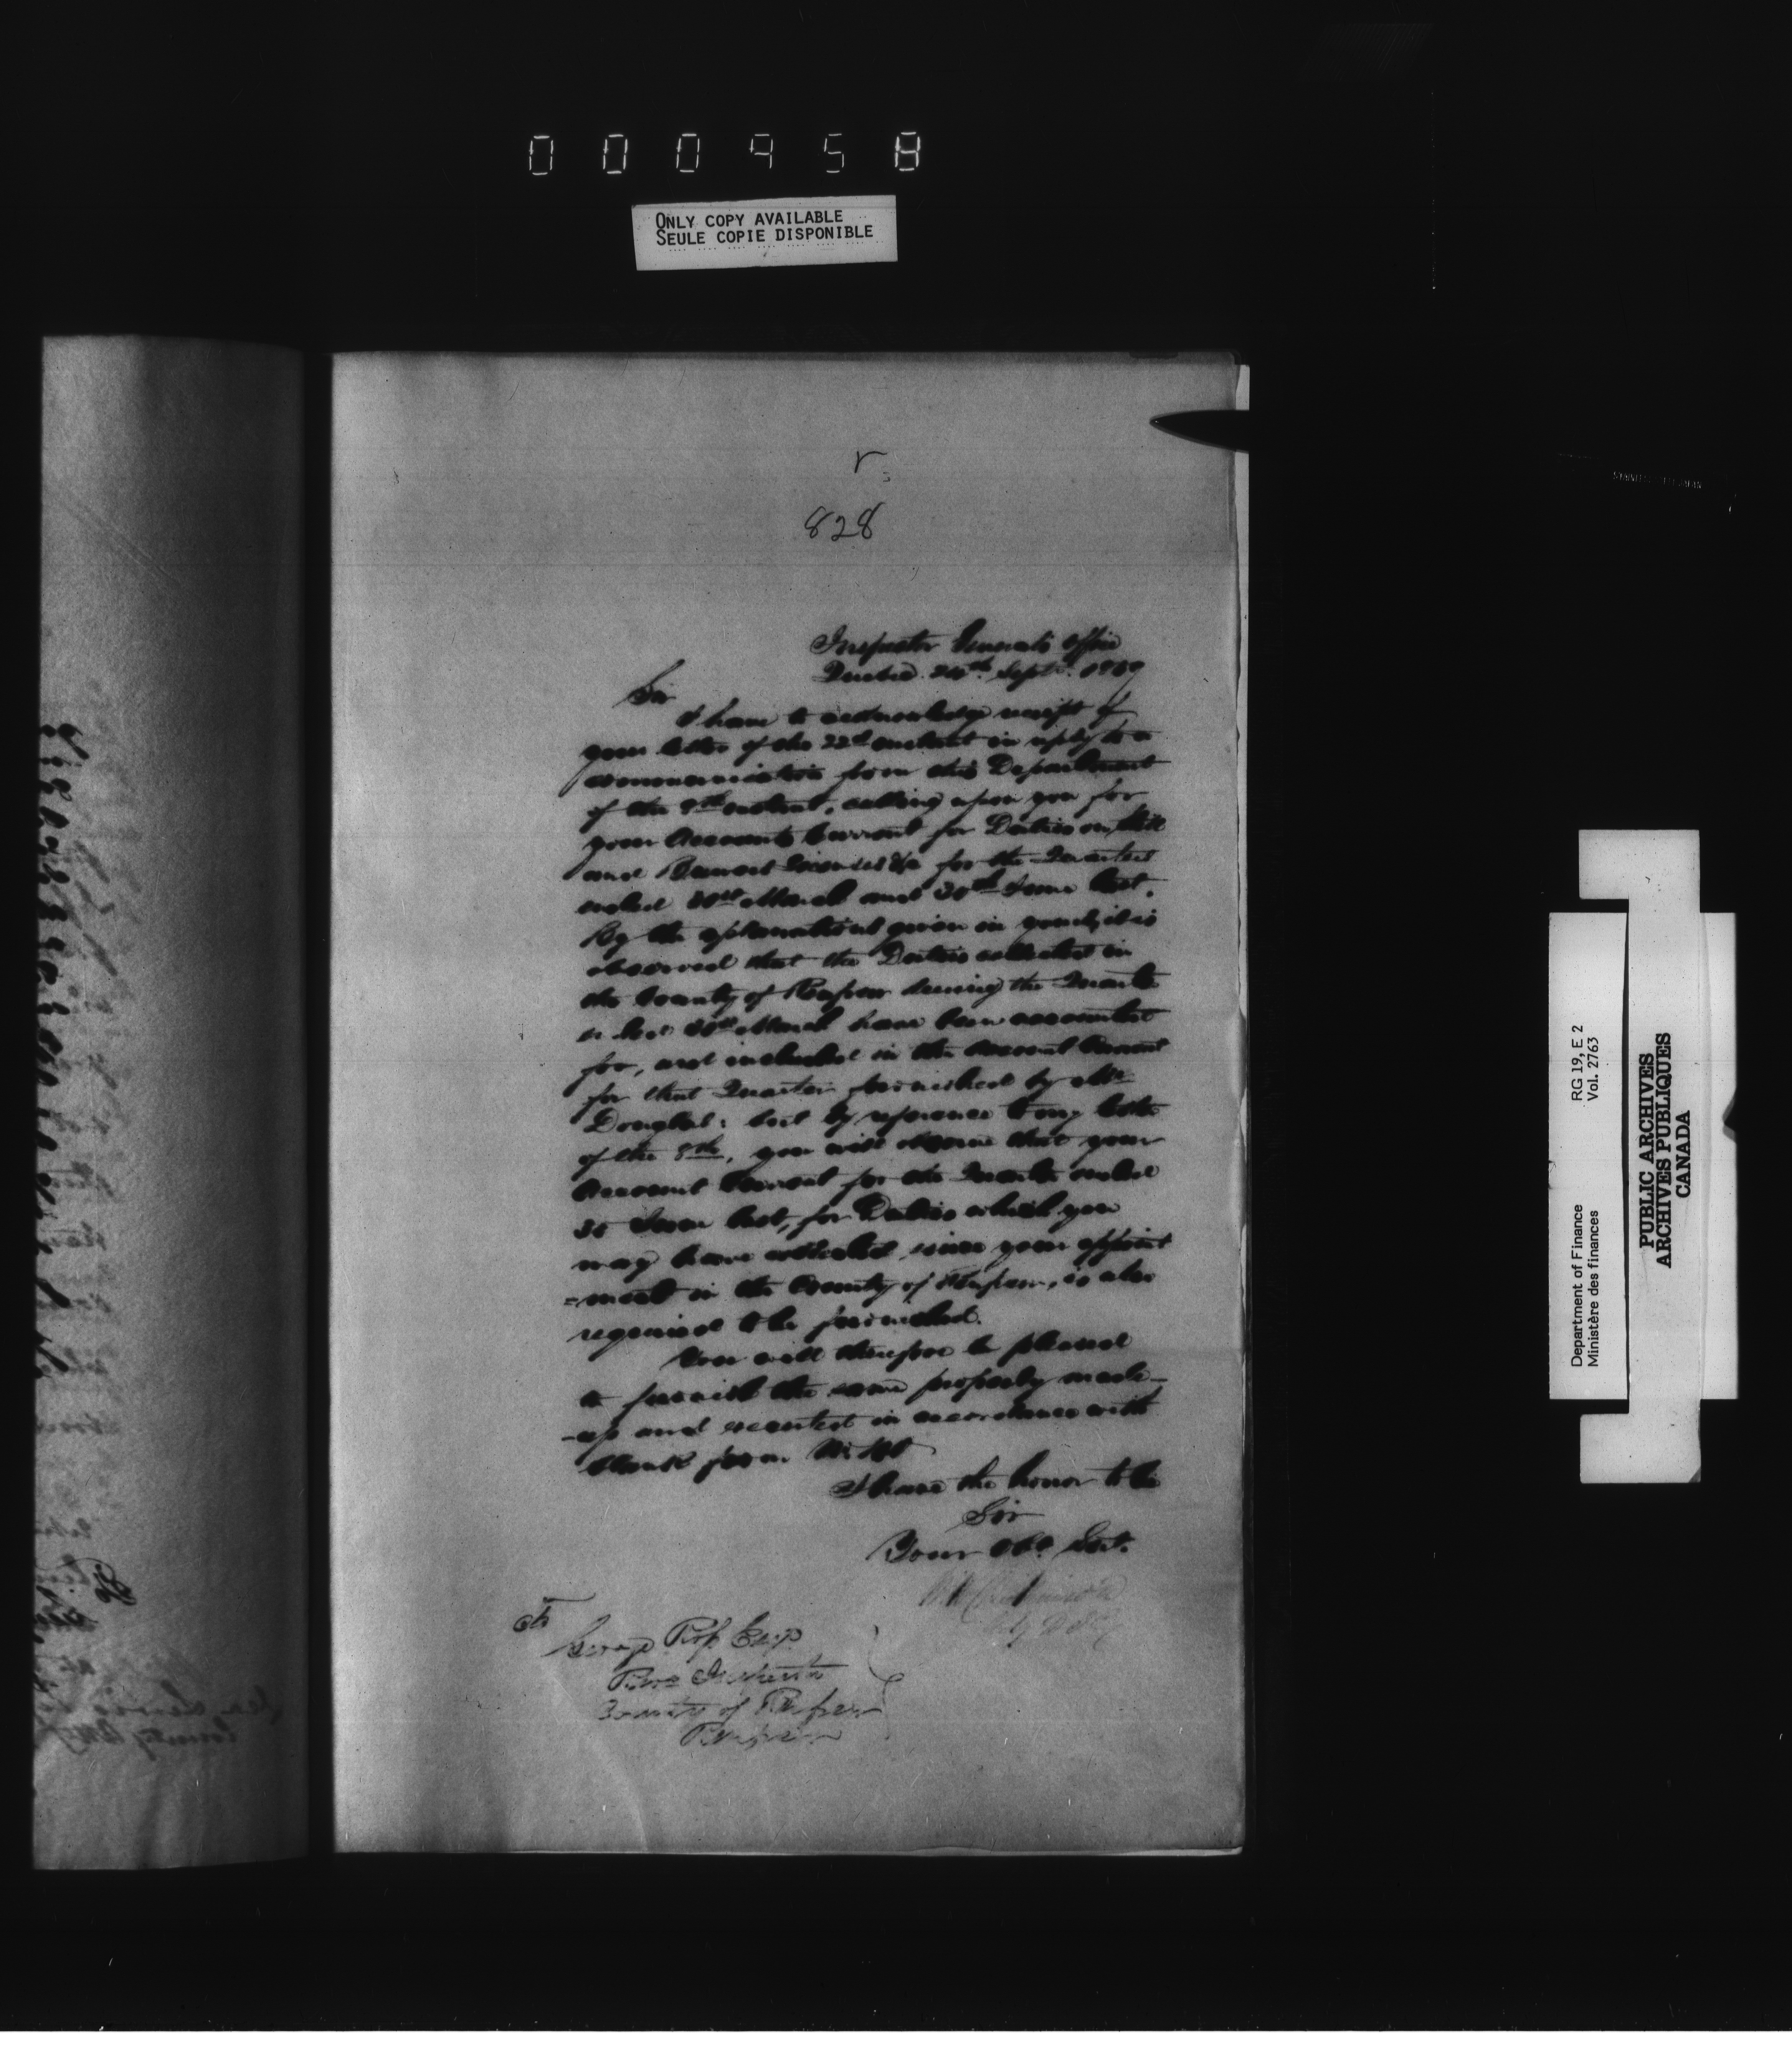 000958
ONLY COPY AVAILABLE
SEULE COPIE DISPONIBLE
828
Inspector General's Office
Quebec 24th Septr. 1867
Sir
I have to acknowledge receipt of
your letter of the 22d instant in reply to a
communication from this Department
of the 8th instant, calling upon you for
your Accounts Current for Duties on Still
and Licenses &c for the Quarters
ended 31st March and 30th June last.
By the explanations given in yours, it is
observed that the Duties collected in
the County of during the Quarter
ended 31st March have been accounted
for, and included in the Account Current
for that Quarter furnished by Mr
Douglas: but by reference to my letter
of the 8th, you will observe that your
Account Current for the Quarter ended
30 June last, for Duties which you
may have collected since your appoint
=ment in the County of , is also
required to be furnished.
You will therefore be pleased
to furnish the same properly made-
-up and executed in accordance with
blank form
I have the honor to be
Sir
Your Obt. Servt.
To
George Esqr
Revenue Inspector
County of
Department of Finance RG 19, E 2
Ministère des finances Vol. 2763
PUBLIC ARCHIVES
ARCHIVES PUBLIQUES
CANADA